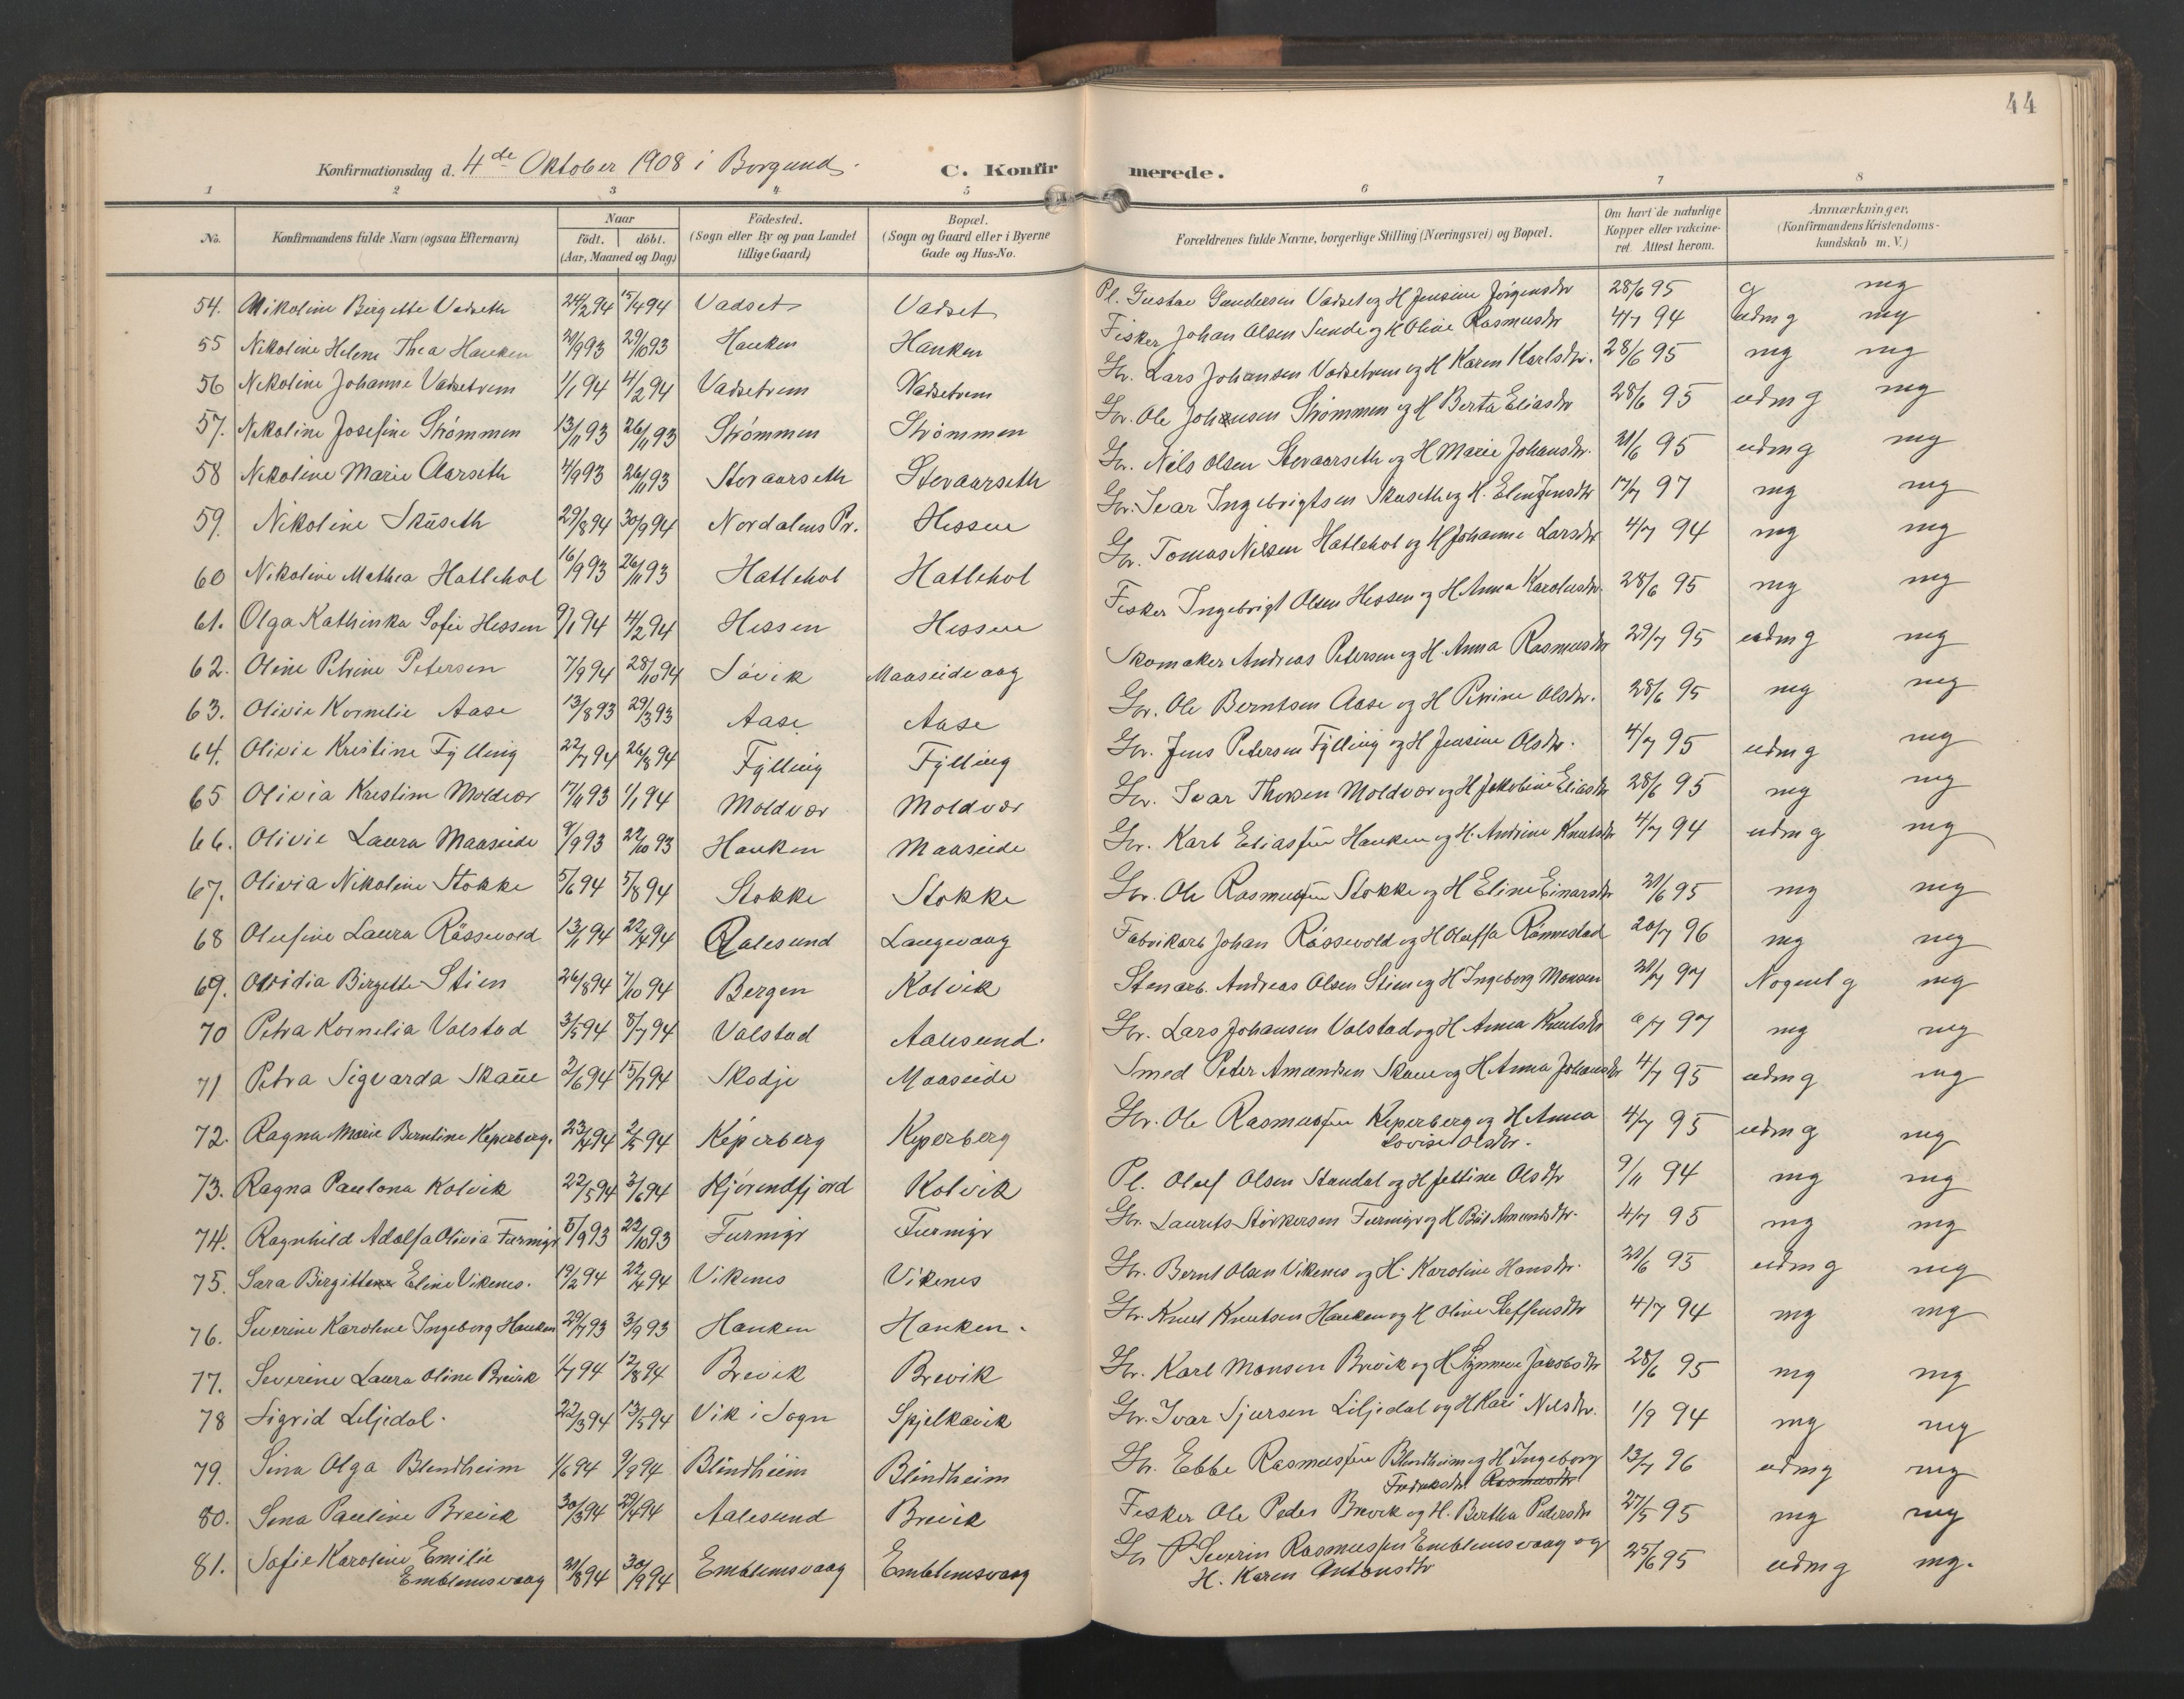 44
Konfirmationsdag d. 4de Oktober 1908 i Borgund.
C. Konfirmerede.
1 2 3 4 5 6 7 8
No. Konfirmandens fulde Navn (ogsaa Efternavn) Naar födt. döbt. (Aar, Maaned og Dag) Födested. (Sogn eller By og paa Landet tillige Gaard) Bopæl. (Sogn og Gaard eller i Byerne Gade og Hus-No. Forældrenes fulde Navne, borgerlige Stilling (Næringsvei) og Bopæl. Om havt de naturlige Kopper eller vaccineret. Attest herom. Anmærkninger. (Konfirmandens Kristendomskundskab m. V.)
54. Nikoline Birgitte Vadseth 24/2 94 15/4 94 Vadset Vadset Pl. Gustav Gundersen Vadset og H Jensine Jörgensdtr 28/6 95 g mg
55 Nikoline Helene Thea Hauken 29/10 93 Hauken Hauken Fisker Johan Olsen Sunde og H Oline Rasmusdtr 4/7 94 udmg mg
56 Nikoline Johanne Vadsetrem 1/1 94 4/2 94 Vadsetrem Vadsetrem Gr. Lars Johansen Vadsetrem og H Karen Karlsdtr. 28/6 95 mg mg
57. Nikoline Josefine Strömmen 13/11 93 26/11 93 Strömmen Strömmen Gr. Ole Johansen Strömmen og H Berta Eliasdtr 28/6 95 udmg mg
58 Nikoline Marie Aarseth 4/9 93 26/11 93 Storaarseth Storaarseth Gr. Nils Olsen Storaarseth og H Marie Johansdtr. 21/6 95 udmg mg
59. Nikoline Skuseth 29/8 94 30/9 94 Nordalens Pr. Hessen Gr. Ivar Ingebrigtsen Skuseth og H. Elen Jensdtr 17/7 97 mg mg
60 Nikoline Mathea Hatlehol 16/9 93 26/11 93 Hatlehol Hatlehol Gr. Tomas Nilsen Hatlehol og H Johanne Larsdtr 4/7 94 mg mg
61. Olga Kathinka Sofie Hessen 9/1 94 4/2 94 Hessen Hessen Fisker Ingebrigt Olsen Hessen og H Anna Karolusdtr. 28/6 95 mg mg
62. Oline Petrine Petersen 7/9 94 28/10 94 Søvik Maaseidvaag Skomaker Andreas Petersen og H. Anna Rasmusdtr 29/7 95 udmg mg
63. Olivie Kornelie Aase 13/8 93 Aase Aase Gr. Ole Berntsen Aase og H Petrine Olsdtr. 28/6 95 mg mg
64. Olivie Kristine Fylling 22/7 94 26/8 94 Fylling Fylling Gr. Jens Petersen Fylling og H Jensine Olsdtr. 4/7 95 udmg mg
65 Olivia Kristine Moldvær 17/11 93 1/1 94 Moldvær Moldvær Gr. Ivar Thorsen Moldvær og H Jakobine Eliasdtr 28/6 95 mg mg
66. Olivie Laura Maaseide 9/9 93 22/10 93 Hauken Maaseide Gr. Karl Eliassen Hauken og H. Andrine Knutsdtr 4/7 94 udmg mg
67. Olivia Nikoline Stokke 5/6 94 5/8 94 Stokke Stokke Gr. Ole Rasmussen Stokke og H Eline Einarsdtr 21/6 95 mg mg
68 Olufine Laura Rössevold 13/1 94 22/4 94 Aalesund Langevaag Fabrikarb Johan Rössevold og H Oluffa Rönnestad 20/7 96 mg mg
69. Ovidia Birgitte Stien 26/8 94 7/10 94 Bergen Kolvik Stenarb. Andreas Olsen Stien og H Ingeborg Monsen 21/7 97 Noget g mg
70 Petra Kornelia Valstad 3/5 94 8/7 94 Valstad Aalesund. Gr. Lars Johansen Valstad og H Anna Knutsdtr 97 mg mg
71 Petra Sigvarda Skaue 2/6 94 15/7 94 Skodje Maaseide Smed Peter Amundsen Skaue og H Anna Johansdtr 4/7 95 udmg mg
72. Ragna Marie Berntine Keperberg. 23/4 94 2/5 94 Keperberg Keperberg Gr. Ole Rasmussen Keperberg og H Anna Lovise Olsdtr. 4/7 95 udmg mg
73. Ragna Paulona Kolvik 22/5 94 3/6 94 Hjörendfjord Kolvik Pl. Oluf Olsen Standal og H Jettine Olsdtr 9/11 94 mg mg
74. Ragnhild Adolfa Olivia Furmyr 5/9 93 22/10 93 Furmyr Furmyr Gr. Laurits Störkersen Furmyr og H Brit Amundsdtr. 4/7 95 mg mg
75. Sara Birgitte Eline Vikenes. 19/2 94 22/4 94 Vikenes Vikenes Gr. Bernt Olsen Vikenes og H. Karoline Hansdtr. 21/6 95 udmg mg
76. Severine Karoline Ingeborg Hauken 29/7 93 3/9 93 Hauken Hauken. Gr. Knut Knutsen Hauken og H Oline Steffensdtr 4/7 94 mg mg
77. Severine Laura Oline Brevik 1/7 94 12/8 94 Brevik Brevik Gr. Karl Monsen Brevik og H Synneve Jakobsdtr 28/6 95 mg mg
78 Sigrid Liljedal. 22/3 94 13/5 94 Vik i Sogn Spjelkavik Gr. Ivar Sjursen Liljedal og H Kari Nilsdtr. 1/9 94 mg mg
79. Sina Olga Blindheim 1/6 94 9/9 94 Blindheim Blindheim Gr. Ebbe Rasmussen Blindheim og H Ingeborg Fredriksdtr Rasmusdtr 13/7 96 udmg mg
80. Sina Pauline Brevik 30/3 94 29/4 94 Aalesund Brevik Fisker Ole Peder Brevik og H. Bertha Pedersdtr 27/5 95 mg mg
81. Sofie Karoline Emilie Emblemsvaag 21/8 94 30/9 94 Emblemsvaag Emblemsvaag Gr P Severin Rasmussen Emblemsvaag og H. Karen Antonsdtr 25/6 95 udmg mg.